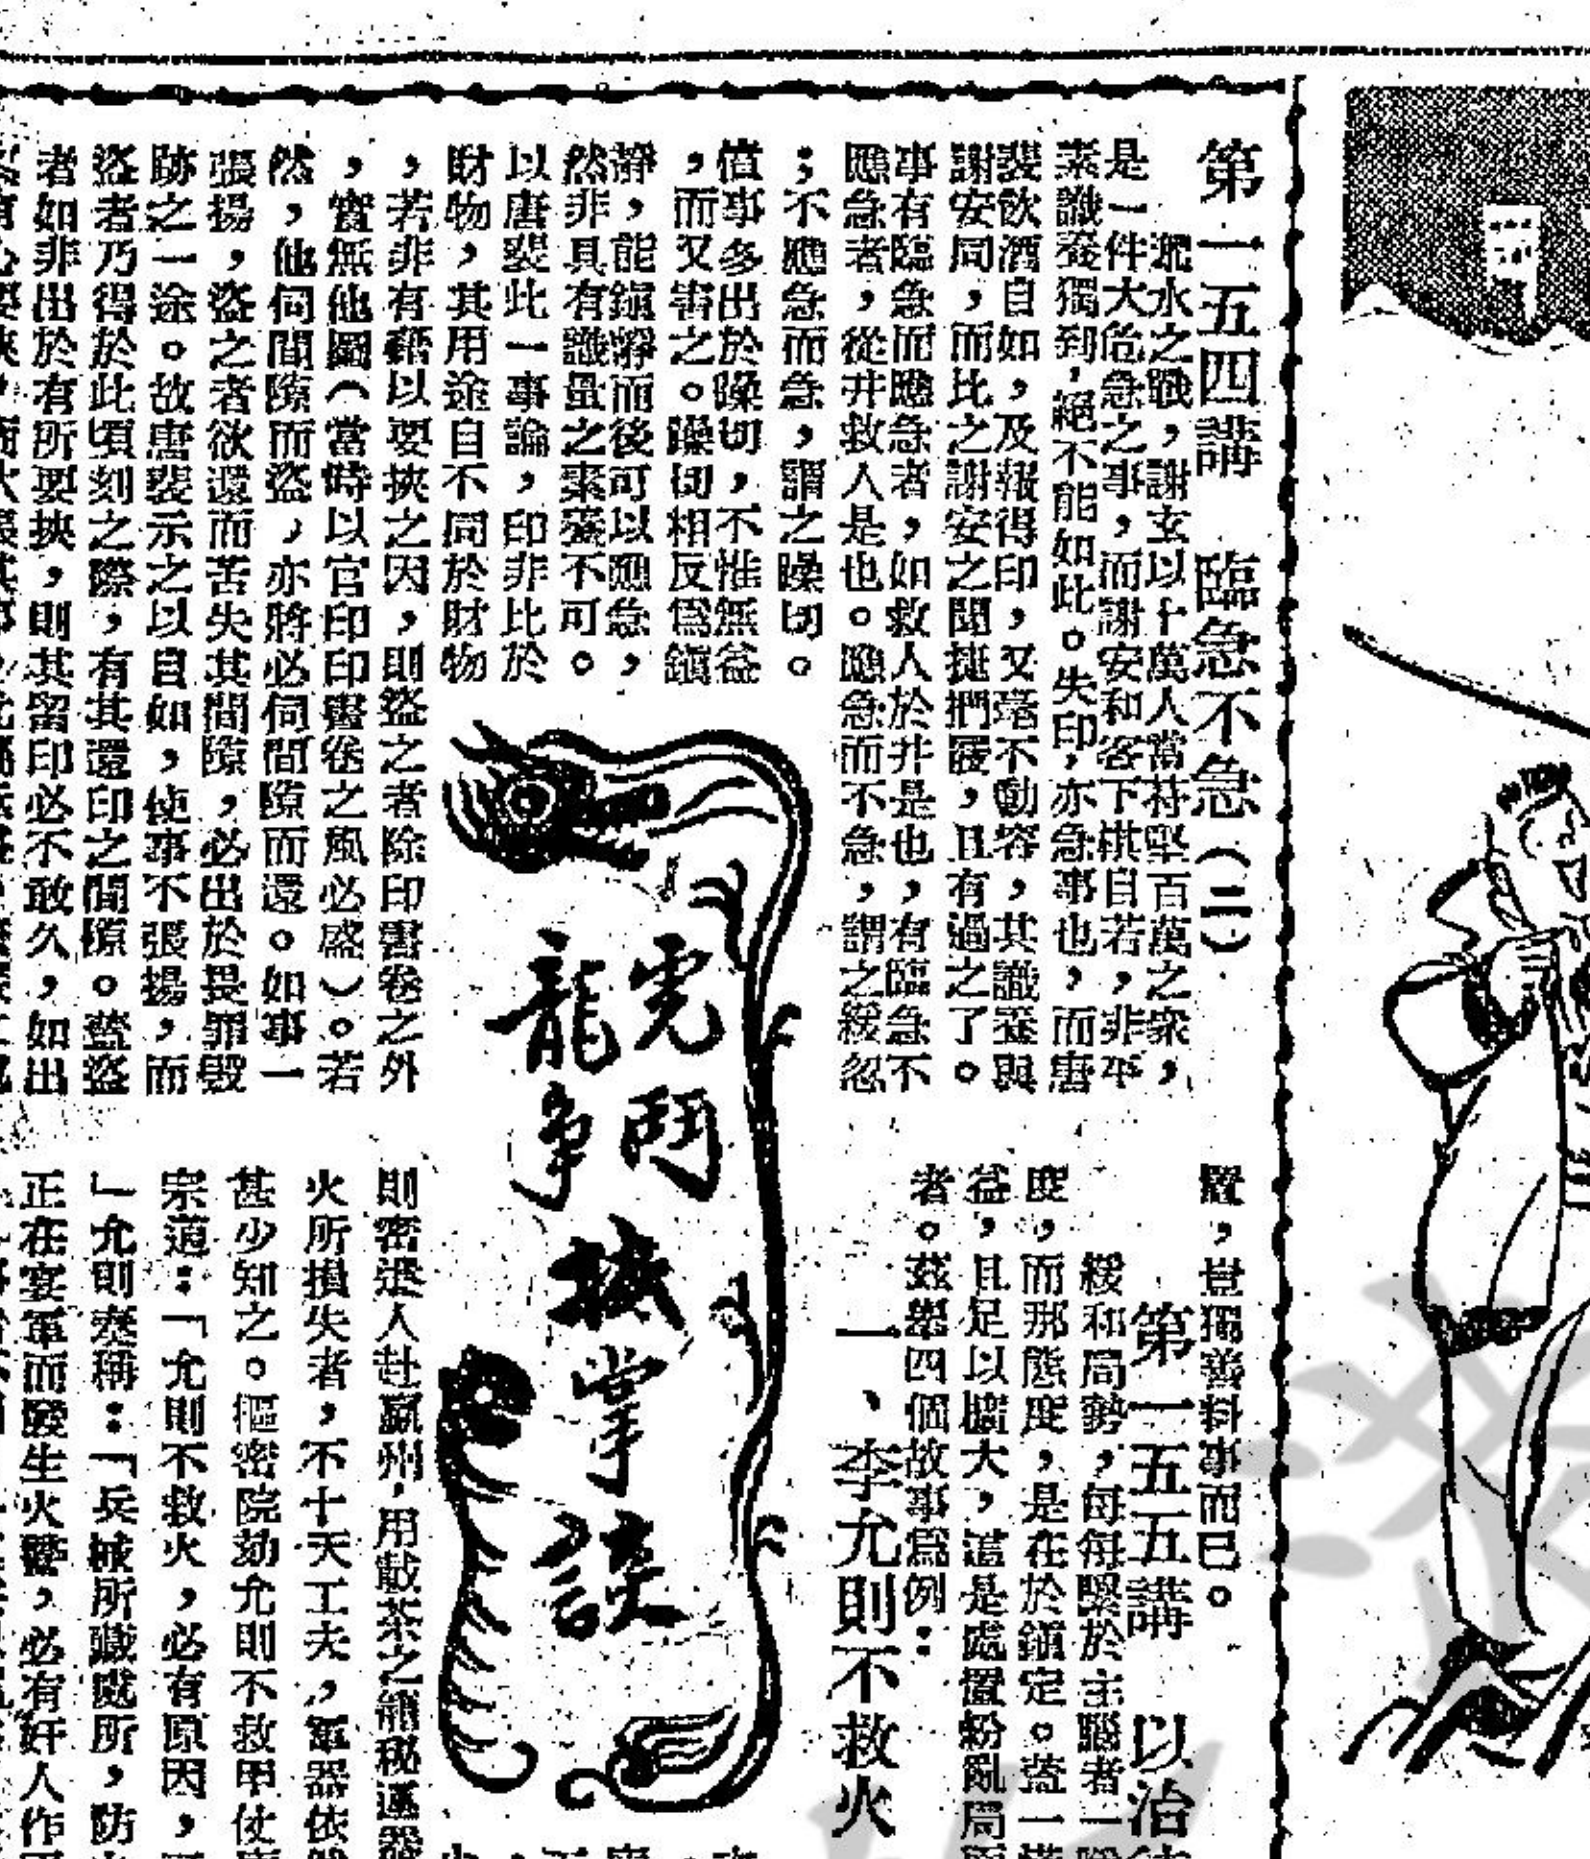 第一五四講 臨急不急(二)
淝水之戰,謝玄以十萬人當苻堅百萬之衆,
是一件大危急之事,而謝安和客下棋自若,非平
素識養獨到,絕不能如此。失印,亦急事也,而唐
裴飲酒自如,及報得印,又毫不動容,其識養與
謝安同,而比之謝安之聞捷捫屐,且有過之了。
事有臨急而應急者,如救人於井是也,有臨急不
應急者,從井救人是也。應急而不急,謂之緩忽
;不應急而急,謂之躁切。
值事多出於躁切,不惟無益
,而又害之。躁切相反爲鎭
靜,能鎭靜而後可以應急,
然非具有識量之素養不可。
以唐裴此一事論,印非比於
財物,其用途自不同於財物
,若非有藉以要挾之因,則盜之者除印書卷之外
,實無他圖(當時以官印印書卷之風必盛)。若
然,他伺間隙而盜,亦將必伺間隙而還。如事一
張揚,盜之者欲還而苦失其間隙,必出於畏罪毀
跡之一途。故唐裴示之以自如,使事不張揚,而
盜者乃得於此頃刻之際,有其還印之間隙。蓋盜
者如非出於有所要挾,則其留印必不敢久,如出
虎鬥
龍爭
抵掌談
置,豈獨善料事而已。
第一五五講 以治
緩和局勢,每每緊於主腦者一
度,而那態度,是在於鎭定。蓋一
益,且足以擴大,這是處置紛亂局
者。茲舉四個故事爲例:
一、李允則不救火
則密遣人赴瀛州,用載茶之籠秘運器
火所損失者,不十天工夫,軍器依
甚少知之。樞密院劾允則不救甲仗
宗道:「允則不救火,必有原因,
」允則奏稱:「兵械所藏處所,防
正在宴軍而發生火警,必有奸人作